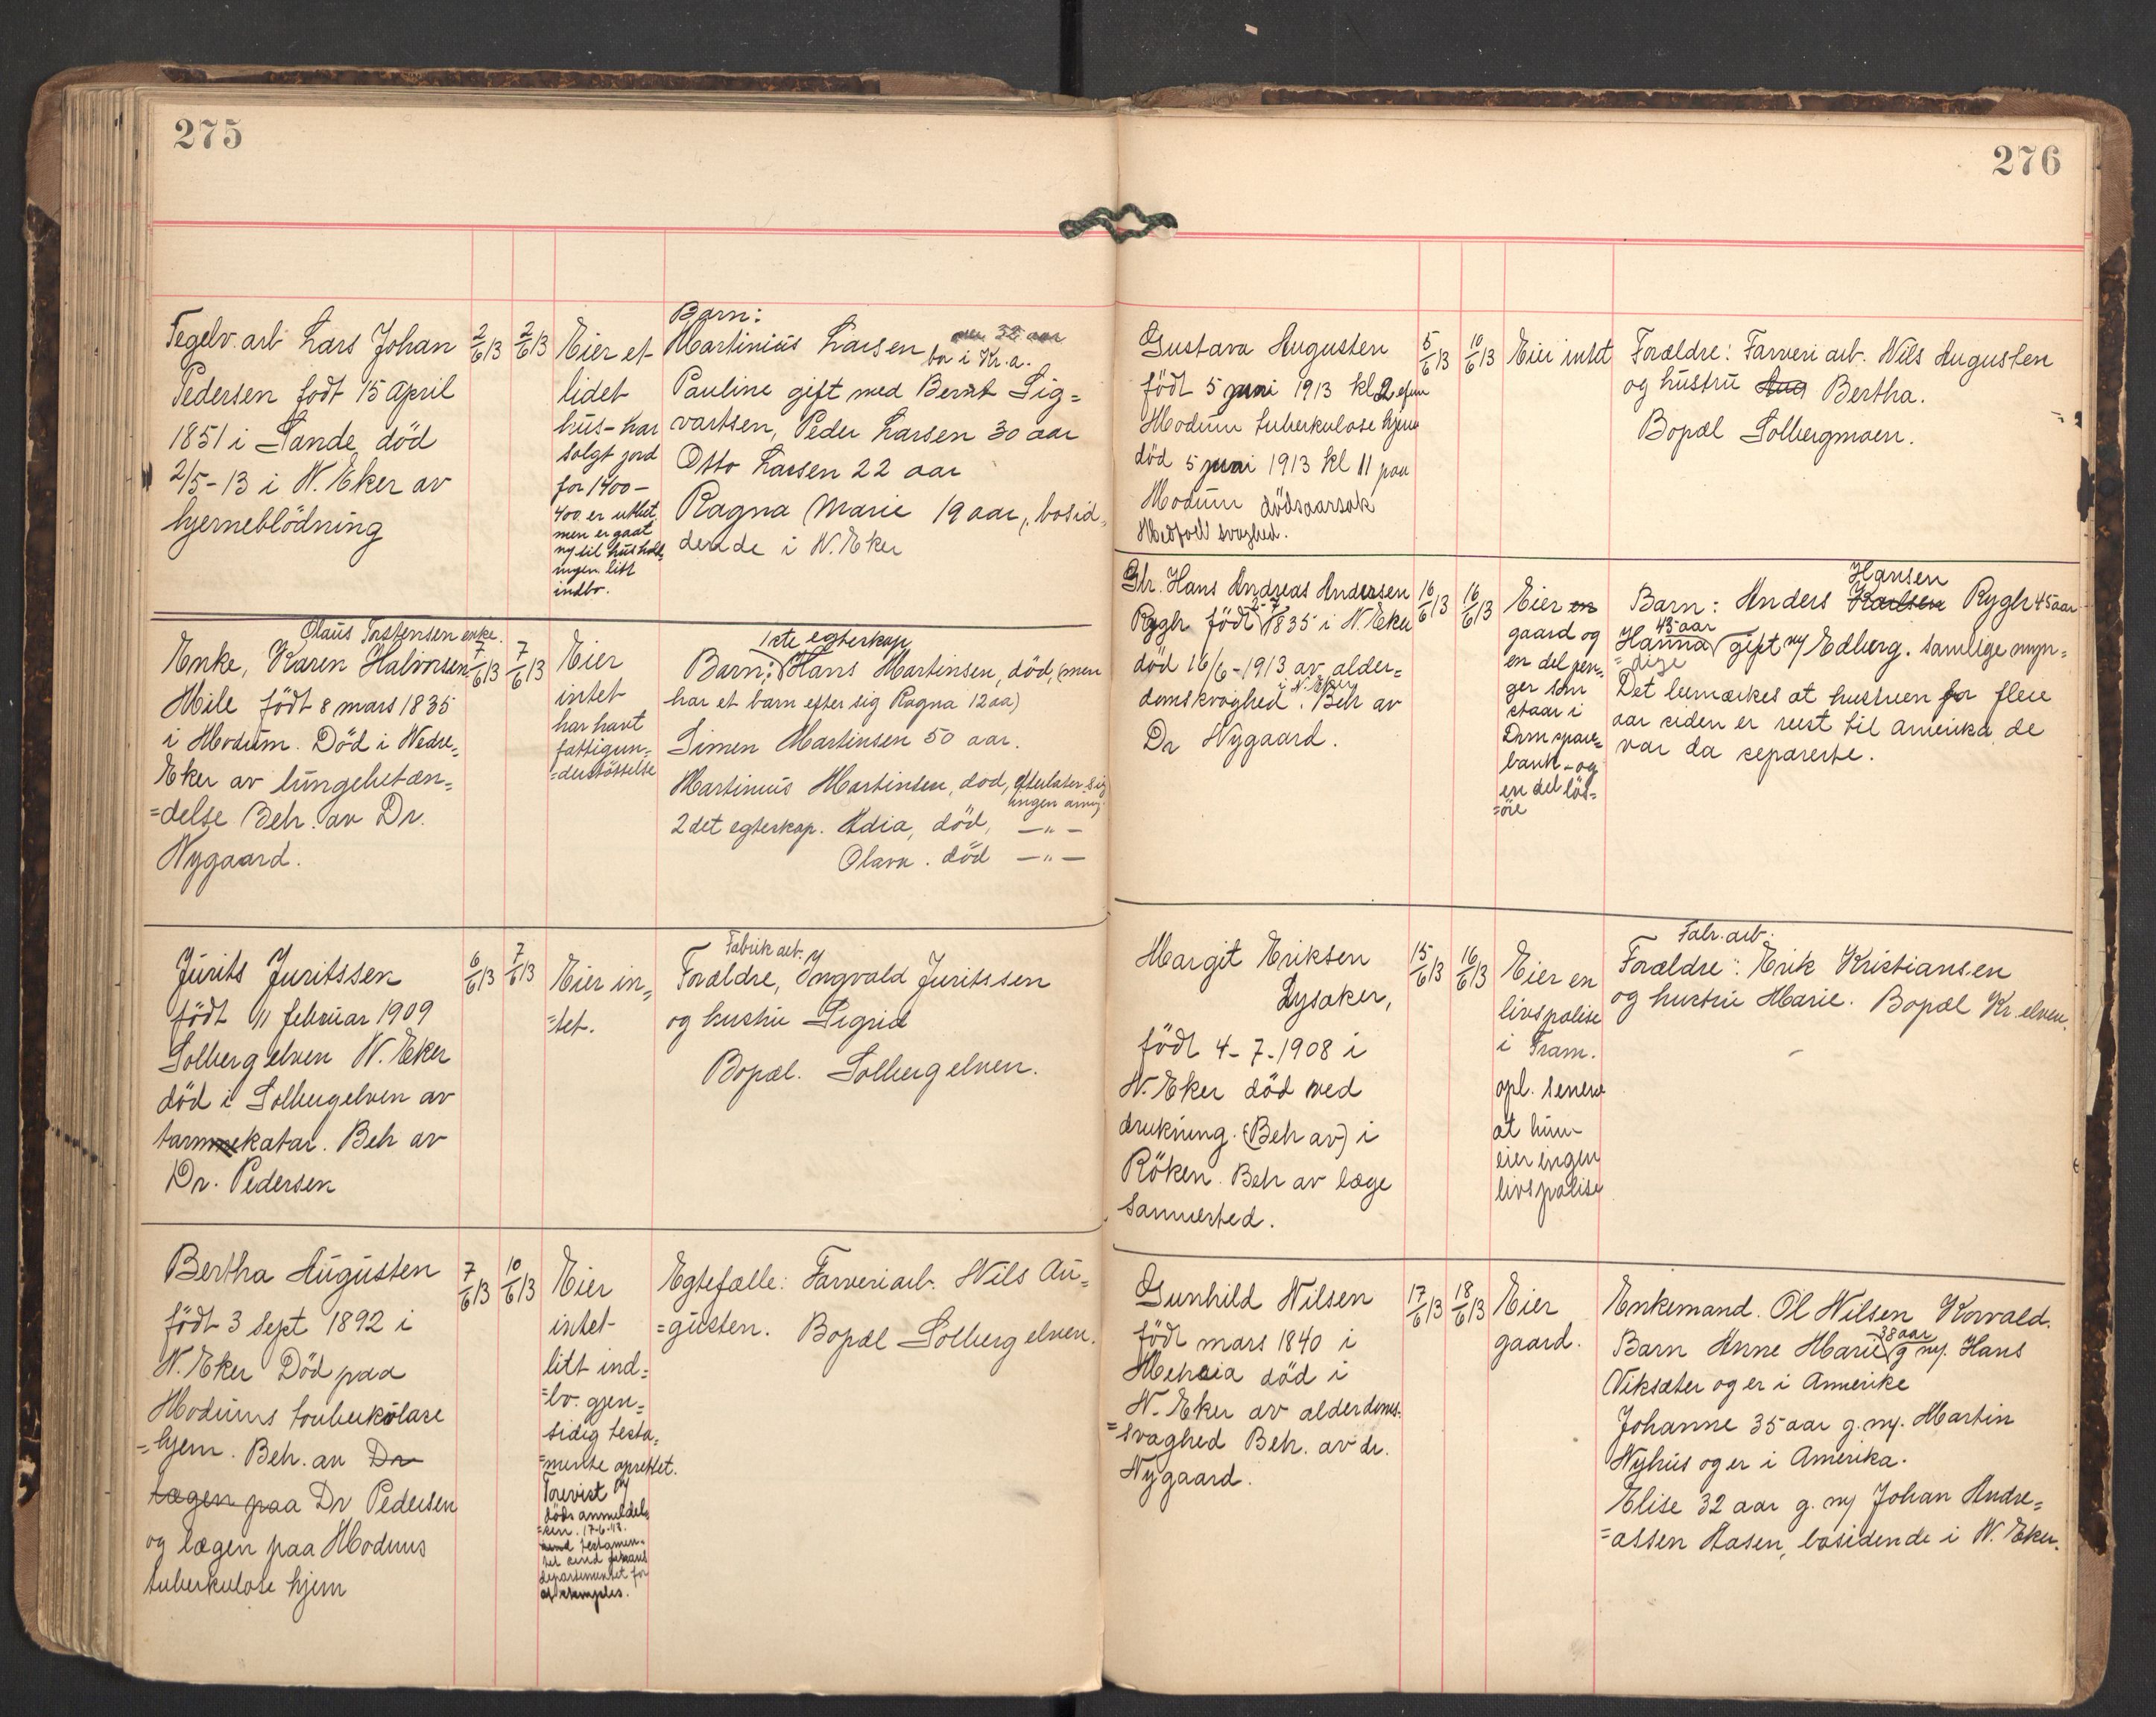 275
Tegelv. arb Lars Johan
Pedersen født 15 April
1851 i Sande, död
2/5-13 i N. Eker av
hjerneblödning
2/6 13
2/6 13
Eier et
lidet
hus - har
solgt jord
for 1400 -
400 er utbet.
men er gaat
ny til hushold,
ningen litt
indbo.
Barn:
Martinius Larsen
bor i Kr.a.
Pauline gift med Bernt Sig=
vartsen, Peder Larsen 30 aar
Otto Larsen 22 aar
Ragna Marie 19 aar, bosid,
dende i N. Eker
Olaus Torstensen enke.
Enke, Karen Halvorsen
Mile födt 8 mars 1835
i Modum. Död i Nedre=
Eker av lungebetæn=
=delse Beh. av Dr.
Nygaard.
7/6 13
7/6 13
Eier
intet
har havt
fattigun=
=derstöttelse
1ste egteskap
Barn: Hans Martinsen, död, (men
har et barn efter sig Ragna 12 aa)
Simen Martinsen 50 aar.
Martinius Martinsen, död, efterlater sig
ingen arving.
2det egteskap. Adia, död, — " —
Olava. död — " —
Jurits Juritssen
födt 11 februar 1909
Solbergelven N. Eker
död i Solbergelven av
tarmkatar. Beh av
Dr. Pedersen
6/6 13
7/6 13
Eier in=
=tet.
Fabrik arb.
Forældre, Ingvald Juritssen
og hustru Sigrid
Bopæl. Solbergelven.
Bertha Augusten
födt 3 Sept 1892 i
N. Eker Död paa
Modums touberkulose
=hjem. Beh. av Dr
lægen paa Dr Pedersen
og lægen paa Modums
tuberkulose hjem
7/6 13
10/6 13
Eier
intet
litt ind=
=bo. gjen=
sidig testa=
=mente oprettet.
Forevist
döds anmeldel,
=sen. 17-6-13.
testamen=
tet send
departementet for
at stemples.
Egtefælle: Farveriarb. Nils Au=
=gusten. Bopæl Solbergelven.
276
Gustava Augusten
födt 5 juni 1913 kl 2 efm
Modum tuberkulose hjem
död 5 juni 1913 kl 11 paa
Modum dödsaarsak
Medfödt svaghed.
5/6 13
10/6 13
Eier intet
Forældre: Farveri arb. Nils Augusten
og hustru Aug Bertha.
Bopæl Solbergmoen.
Gbr. Hans Andreas Andersen
Rygh födt 2-7 1835 i N. Eker
död 16/6-1913 av alder=
domssvaghed i N. Eker. Beh av
Dr Nygaard.
16/6 13
16/6 13
Eier en
gaard og
en del pen=
ger som
staar i
Drm spare=
bank - og
en del lös=
=öre
Barn: Anders Karlsen Hansen Rygh 45 aar
Hanna 43 aar gift m/ Edberg. samlige myn=
=dige
Det bemærkes at hustruen for flere
aar siden er reist til Amerika, de
var da separerte.
Margit Eriksen
Lysaker,
födt 4-7-1908 i
N. Eker död ved
drukning. (Beh av) i
Röken. Beh av læge
Sannerstad.
15/6 13
16/6 13
Eier en
livspolise
i Fram.
opl. senere
at hun
eier ingen
livspolise
Fabr. arb.
Forældre: Erik Kristiansen
og hustru Marie. Bopæl Kr. elven.
Gunhild Nilsen
födt mars 1840 i
död i
N. Eker av alderdoms=
=svaghed Beh. av dr.
Nygaard.
17/6 13
18/6 13
Eier
gaard.
Enkemand. Ol Nilsen Korvald.
Barn Anne Marie 38 aar g m/. Hans
Viksæter og er i Amerike
Johanne 35 aar g. m/. Martin
Nyhus og er i Amerika.
Elise 32 aar g. m/ Johan Andre=
=assen Aasen, bosidende i N. Eker.